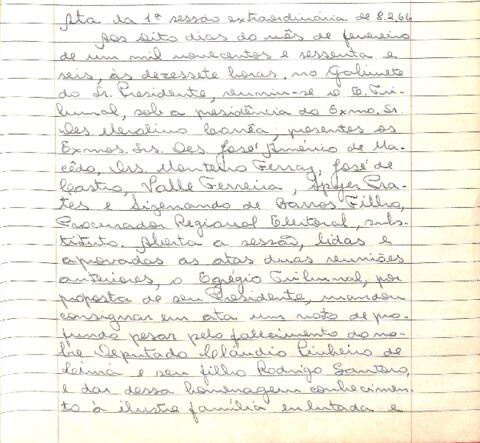 Ata da 1ª sessão extraordinária de 8.2.66
Aos oito dias do mês de fevereiro
de um mil novecentos e sessenta e
seis, às dezessete horas, no Gabinete
do Sr. Presidente, reuniu-se o E. Tri-
bunal, sob a presidência do Exmo. Sr.
Des. Merolino Corrêa, presentes os
Exmos. Srs. Des. José Américo de Ma-
cêdo, Drs. Monteiro Ferraz, José de
Castro, Valle Ferreira, Spyer Pra-
tes e Sizenando de Barros Filho,
Procurador Regional Eleitoral, subs-
tituto. Aberta a sessão, lidas e
aprovadas as atas duas reuniões
anteriores, o Egrégio Tribunal, por
proposta de seu Presidente, mandou
consignar em ata um voto de pro-
fundo pesar pelo falecimento do no-
bre Deputado Cláudio Pinheiro de
Lima e seu filho Rodrigo Santoro,
e dar dessa homenagem conhecimen-
to à ilustre família enlutada e